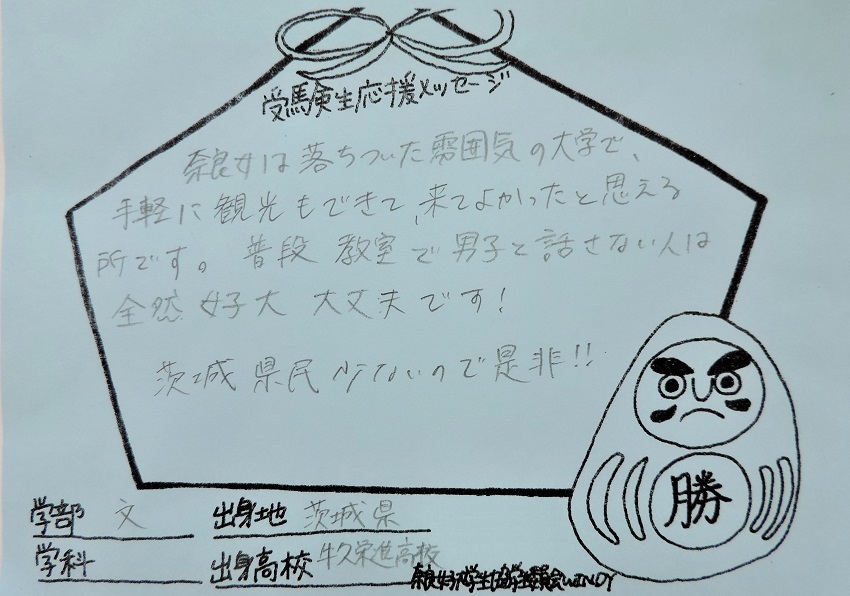 受験生応援メッセージ
奈良女は落ちついた雰囲気の大学で、
手軽に観光もできて、来てよかったと思える
所です。普段 教室で男子と話さない人は
全然 女子大 大丈夫です!
茨城県民少ないので是非!!
勝
学部 文
出身地 茨城県
学科
出身高校 牛久栄進高校
奈良女子大学生協学生委員会WINDY